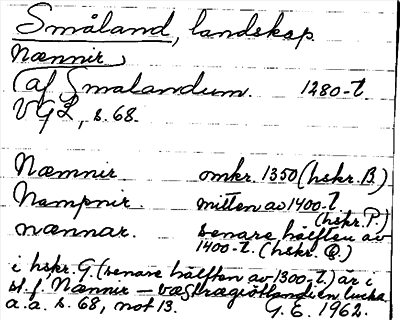 Småland, landskap.
Nænnir
(af Smalandum. 1280-t
VGL, s. 68.
Næmnir omkr. 1350 (hskr. B.)
Nempnir. mitten av 1400-t
(hskr. P.)
nænnar. senare hälften av
1400-t. (hskr. Q.)
i hskr. G. (senare hälften av 1300-t.) är i
st. f. Nænnir — væstragiötlandien lucka
a.a. s. 68, not 13. G. E. 1962.